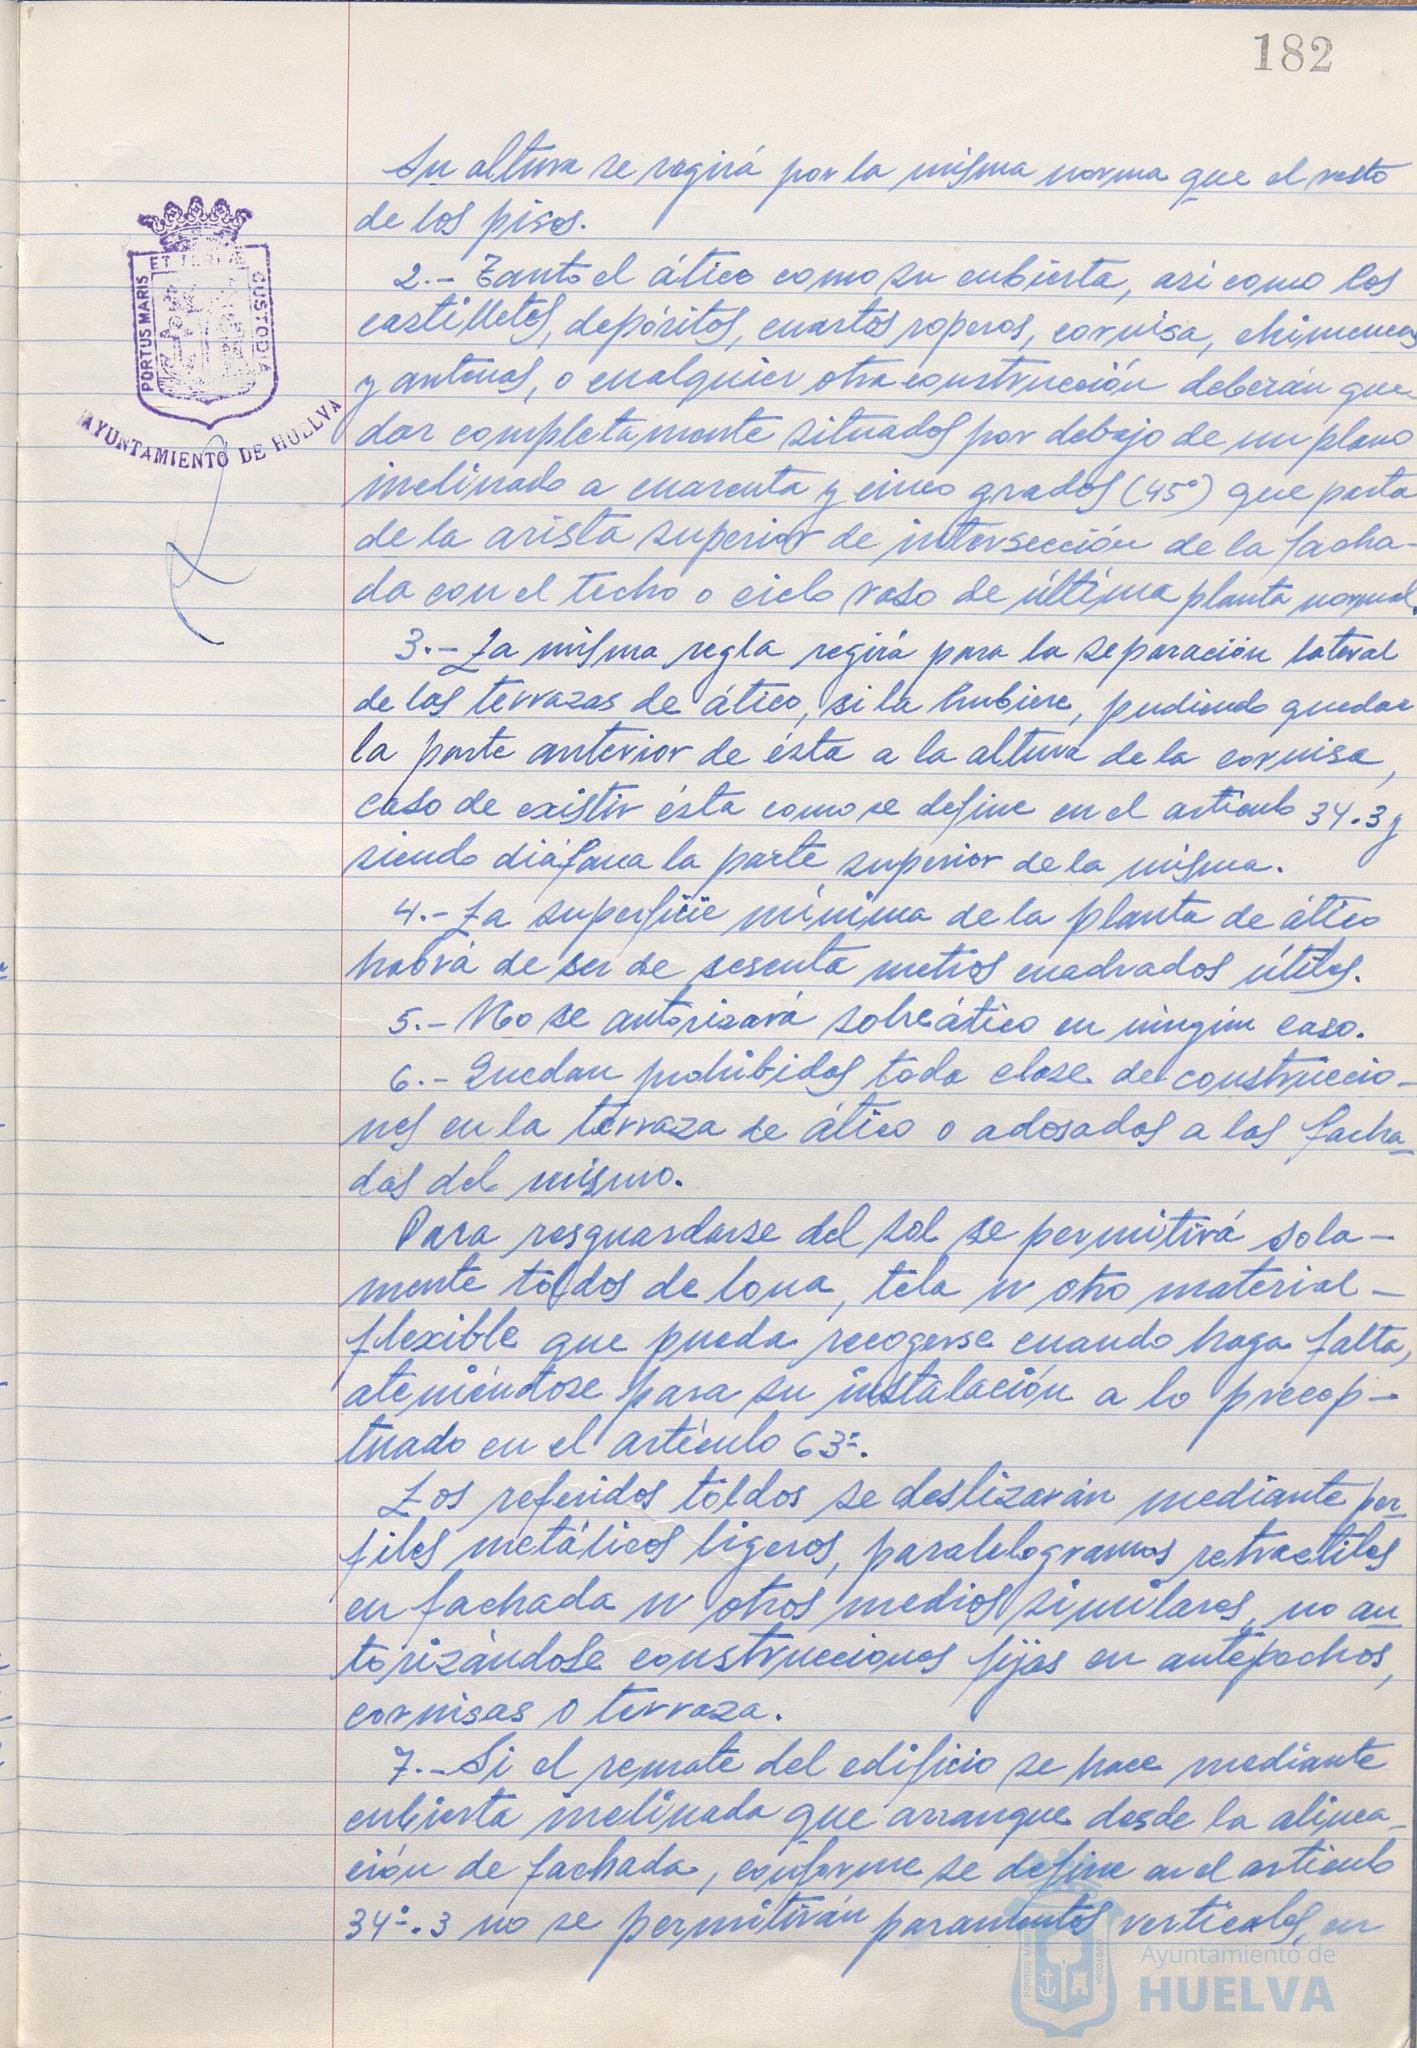 182
Su altura se regirá por la misma norma que el resto
de los pisos.
2.- Tanto el ático como su cubierta, así como los
castilletes, depósitos, cuartos roperos, cornisa, chimeneas
y antenas, o cualquier otra construcción deberán que-
dar completamente situados por debajo de un plano
inclinado a cuarenta y cinco grados (45º) que parta
de la arista superior de intersección de la facha-
da con el techo o cielo raso de última planta normal.
3.- La misma regla regirá para la separación lateral
de las terrazas de ático, si la hubiere, pudiendo quedar
la parte anterior de ésta a la altura de la cornisa,
caso de existir ésta como se define en el artículo 34.3 y
siendo diáfana la parte superior de la misma.
4.- La superficie mínima de la planta de ático
habrá de ser de sesenta metros cuadrados útiles.
5.- No se autorizará sobreático en ningún caso.
6.- Quedan prohibidas toda clase de construccio-
nes en la terraza de ático o adosados a las facha-
das del mismo.
Para resguardarse del sol se permitirá sola-
mente toldos de lona, tela u otro material-
flexible que pueda recogerse cuando haga falta,
ateniéndose para su instalación a lo precep-
tuado en el artículo 63º.
Los referidos toldos se deslizarán mediante per-
files metálicos ligeros, paralelogramos retractiles
en fachada u otros medios similares, no au-
torizándose construcciones fijas en antepechos,
cornisas o terraza.
7.- Si el remate del edificio se hace mediante
cubierta inclinada que arranque desde la alinea-
ción de fachada, conforme se define en el artículo
34º.3 no se permitirán paramentos verticales, en
PORTUS MARIS ET CUSTODIA
AYUNTAMIENTO DE HUELVA
Ayuntamiento de
HUELVA